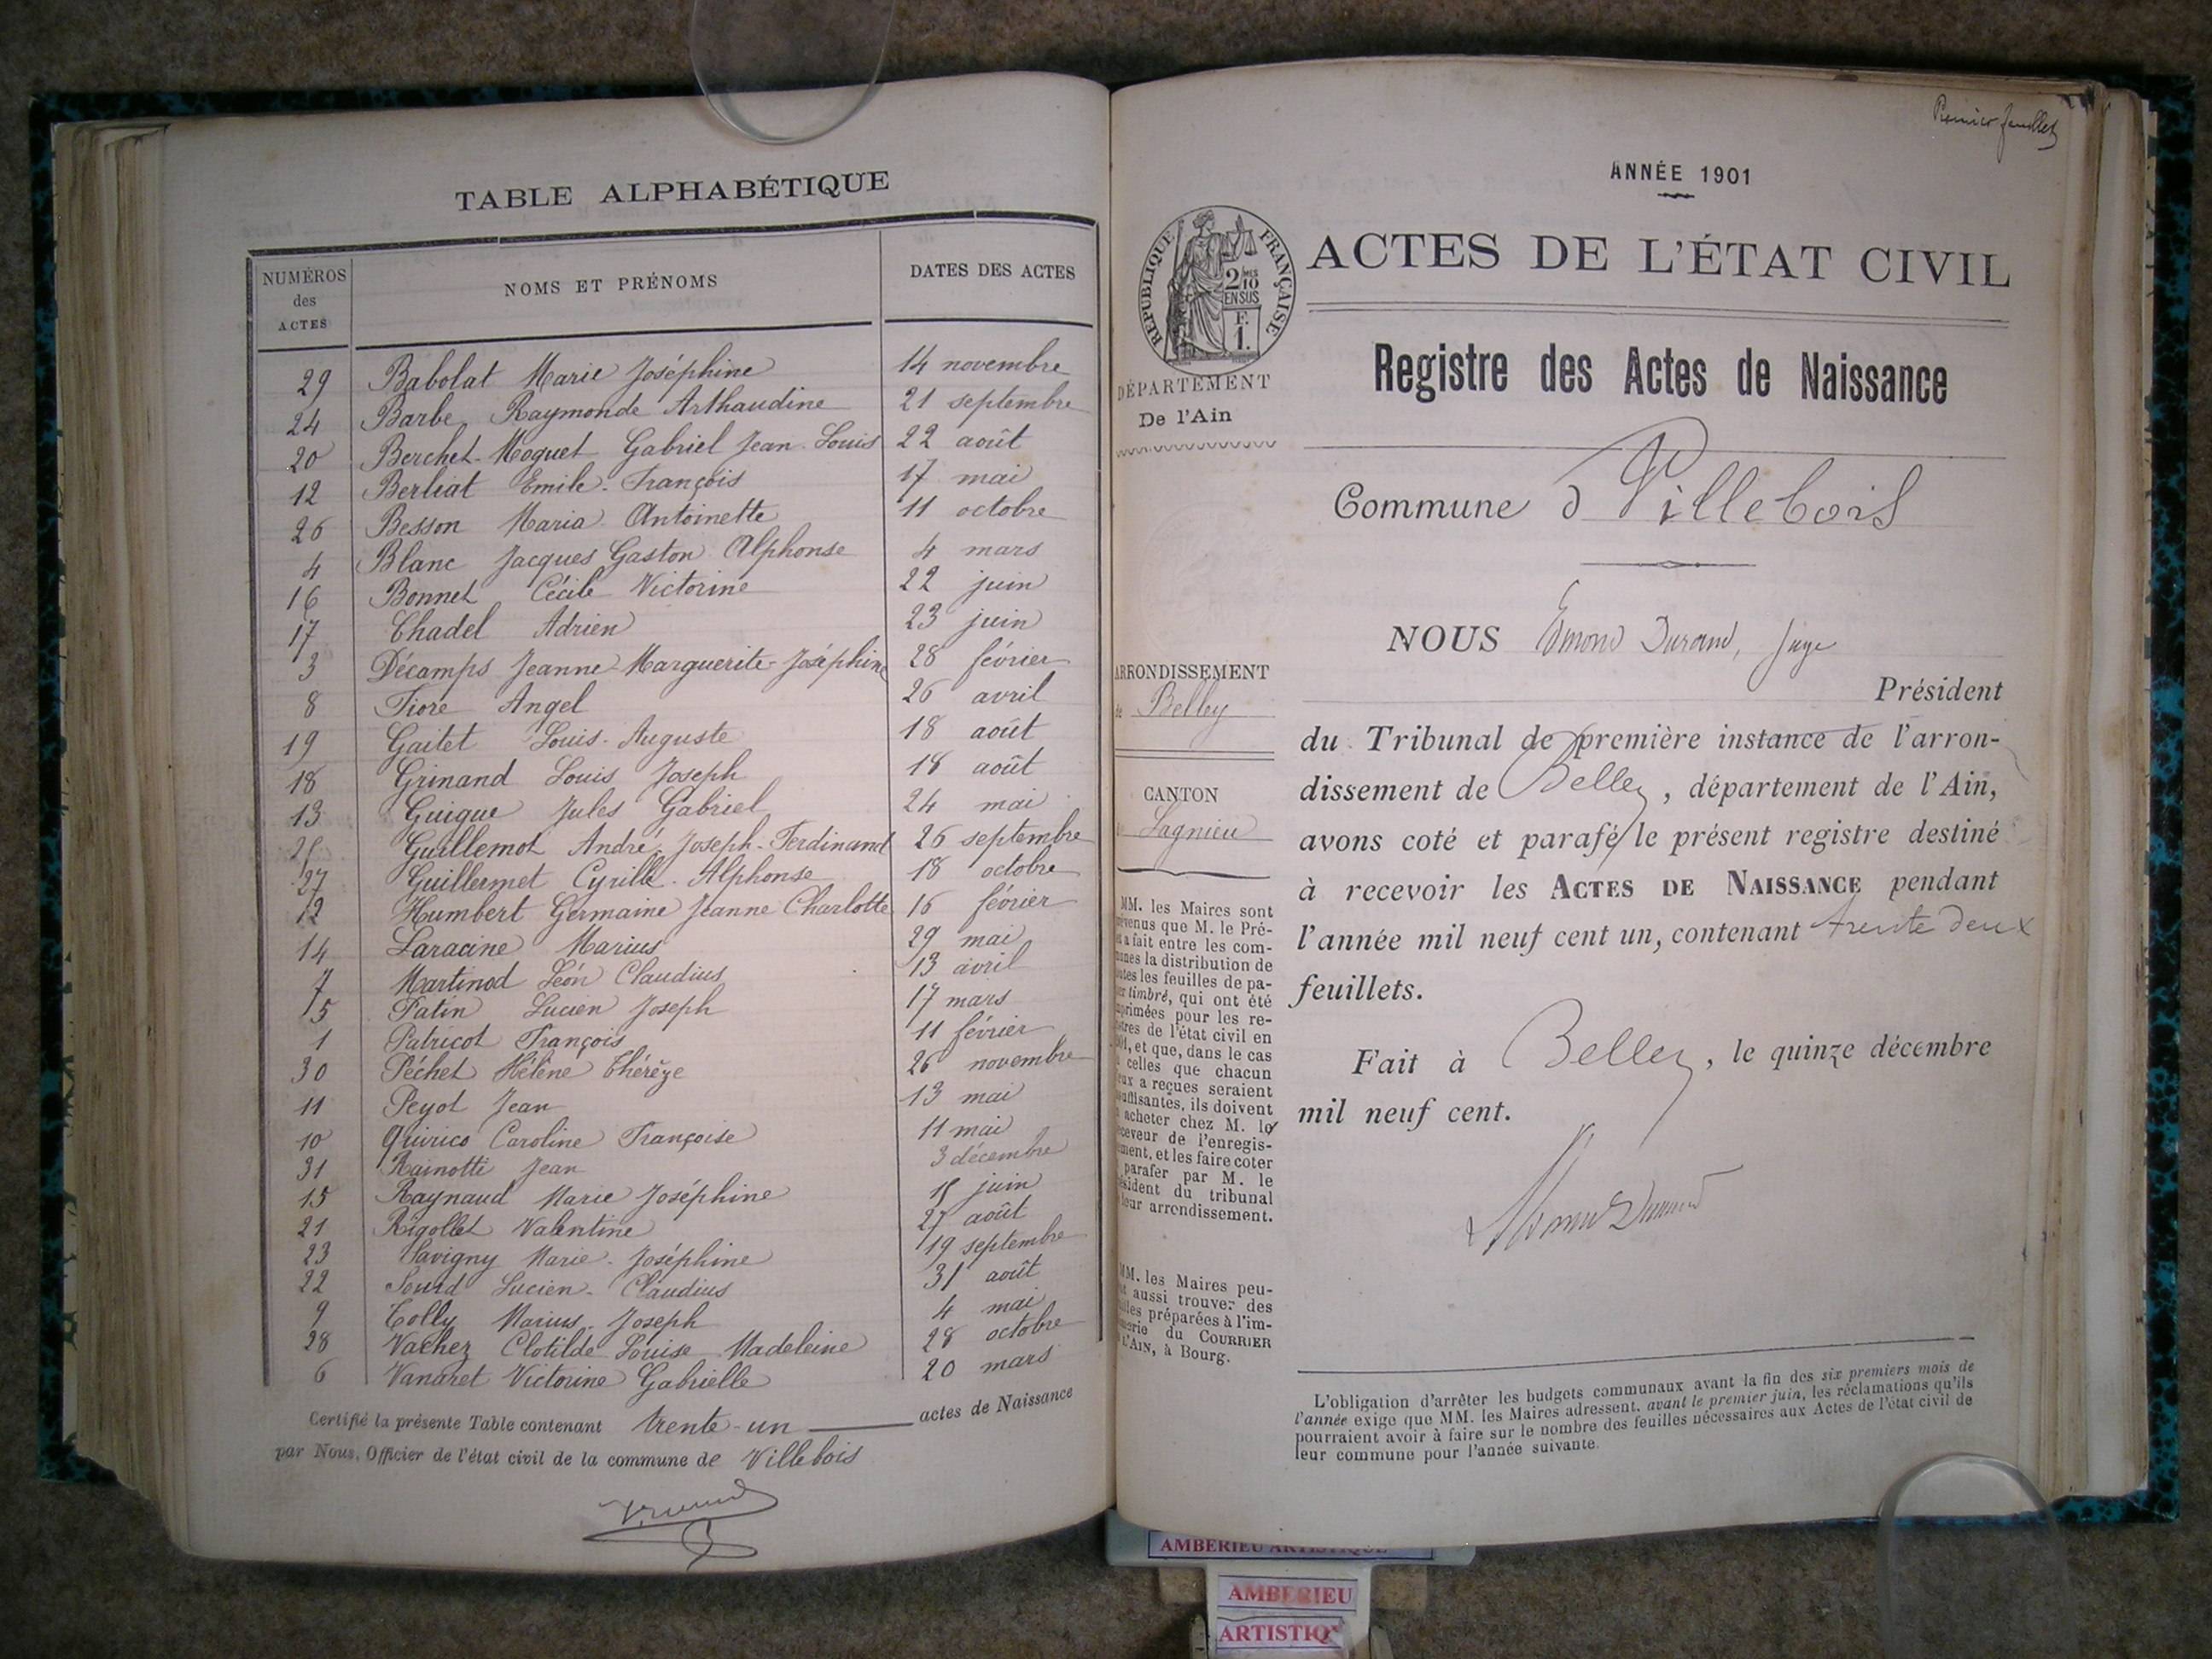 TABLE ALPHABÉTIQUE
NUMÉROS des ACTES NOMS ET PRÉNOMS DATES DES ACTES
29 Babolat Marie Joséphine 14 novembre
24 Barbe Raymonde Arthaudine 21 septembre
20 Berchet-Moguet Gabriel Jean Louis 22 août
12 Berliat Emile-François 17 mai
26 Besson Maria Antoinette 11 octobre
4 Blanc Jacques Gaston Alphonse 4 mars
16 Bonnet Cécile Victorine 22 juin
17 Chadel Adrien 23 juin
3 Décamps Jeanne-Marguerite-Joséphine 28 février
8 Fiore Angel 26 avril
19 Gaitet Louis-Auguste 18 août
18 Grinand Louis Joseph 18 août
13 Guigue Jules Gabriel 24 mai
Guillemot André Joseph-Ferdinand 26 septembre
27 Guillermet Cyrille-Alphonse 18 octobre
Humbert Germaine Jeanne Charlotte 16 février
14 Laracine Marius 29 mai
7 Martinod Léon Claudius 13 avril
5 Patin Lucien Joseph 17 mars
1 Patricot François 11 février
30 Péchet Hélène Thérèze 26 novembre
11 Peyot Jean 13 mai
10 Quirico Caroline Françoise 11 mai
31 Rainotti Jean 3 décembre
15 Raynaud Marie Joséphine 15 juin
21 Rigollet Valentine 27 août
23 Savigny Marie-Joséphine 19 septembre
22 Sourd Lucien-Claudius 31 août
9 Tolly Marius-Joseph 4 mai
28 Vachez Clotilde Louise Madeleine 28 octobre
6 Vanaret Victorine Gabrielle 20 mars
Certifié la présente Table contenant trente-un actes de Naissance
par Nous, Officier de l'état civil de la commune de Villebois
Premier feuillet
ANNÉE 1901
RÉPUBLIQUE FRANÇAISE
2/10 EN SUS
F. 1.
ACTES DE L'ÉTAT CIVIL
DÉPARTEMENT
De l'Ain
Registre des Actes de Naissance
Commune d Villebois
NOUS Edmond Durand, Juge
Président
du Tribunal de première instance de l'arron-
dissement de Belley, département de l'Ain,
avons coté et parafé le présent registre destiné
à recevoir les ACTES DE NAISSANCE pendant
l'année mil neuf cent un, contenant trente deux
feuillets.
Fait à Belley, le quinze décembre
mil neuf cent.
ARRONDISSEMENT
de Belley
CANTON
Lagnieu
MM. les Maires sont
prévenus que M. le Pré-
a fait entre les com-
munes la distribution de
toutes les feuilles de pa-
pier timbré, qui ont été
imprimées pour les re-
gistres de l'état civil en
et que, dans le cas
celles que chacun
d'eux a reçues seraient
insuffisantes, ils doivent
acheter chez M. le
receveur de l'enregis-
trement, et les faire coter
parafer par M. le
Président du tribunal
leur arrondissement.
MM. les Maires peu-
aussi trouver des
préparées à l'im-
du COURRIER
L'AIN, à Bourg.
L'obligation d'arrêter les budgets communaux avant la fin des six premiers mois de
l'année exige que MM. les Maires adressent, avant le premier juin, les réclamations qu'ils
pourraient avoir à faire sur le nombre des feuilles nécessaires aux Actes de l'état civil de
leur commune pour l'année suivante.
AMBERIEU ARTISTIQUE
AMBERIEU
ARTISTIQ